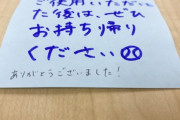 ご使用いただい
た後は、ぜひ
お持ち帰り
ください
ありがとうございました!